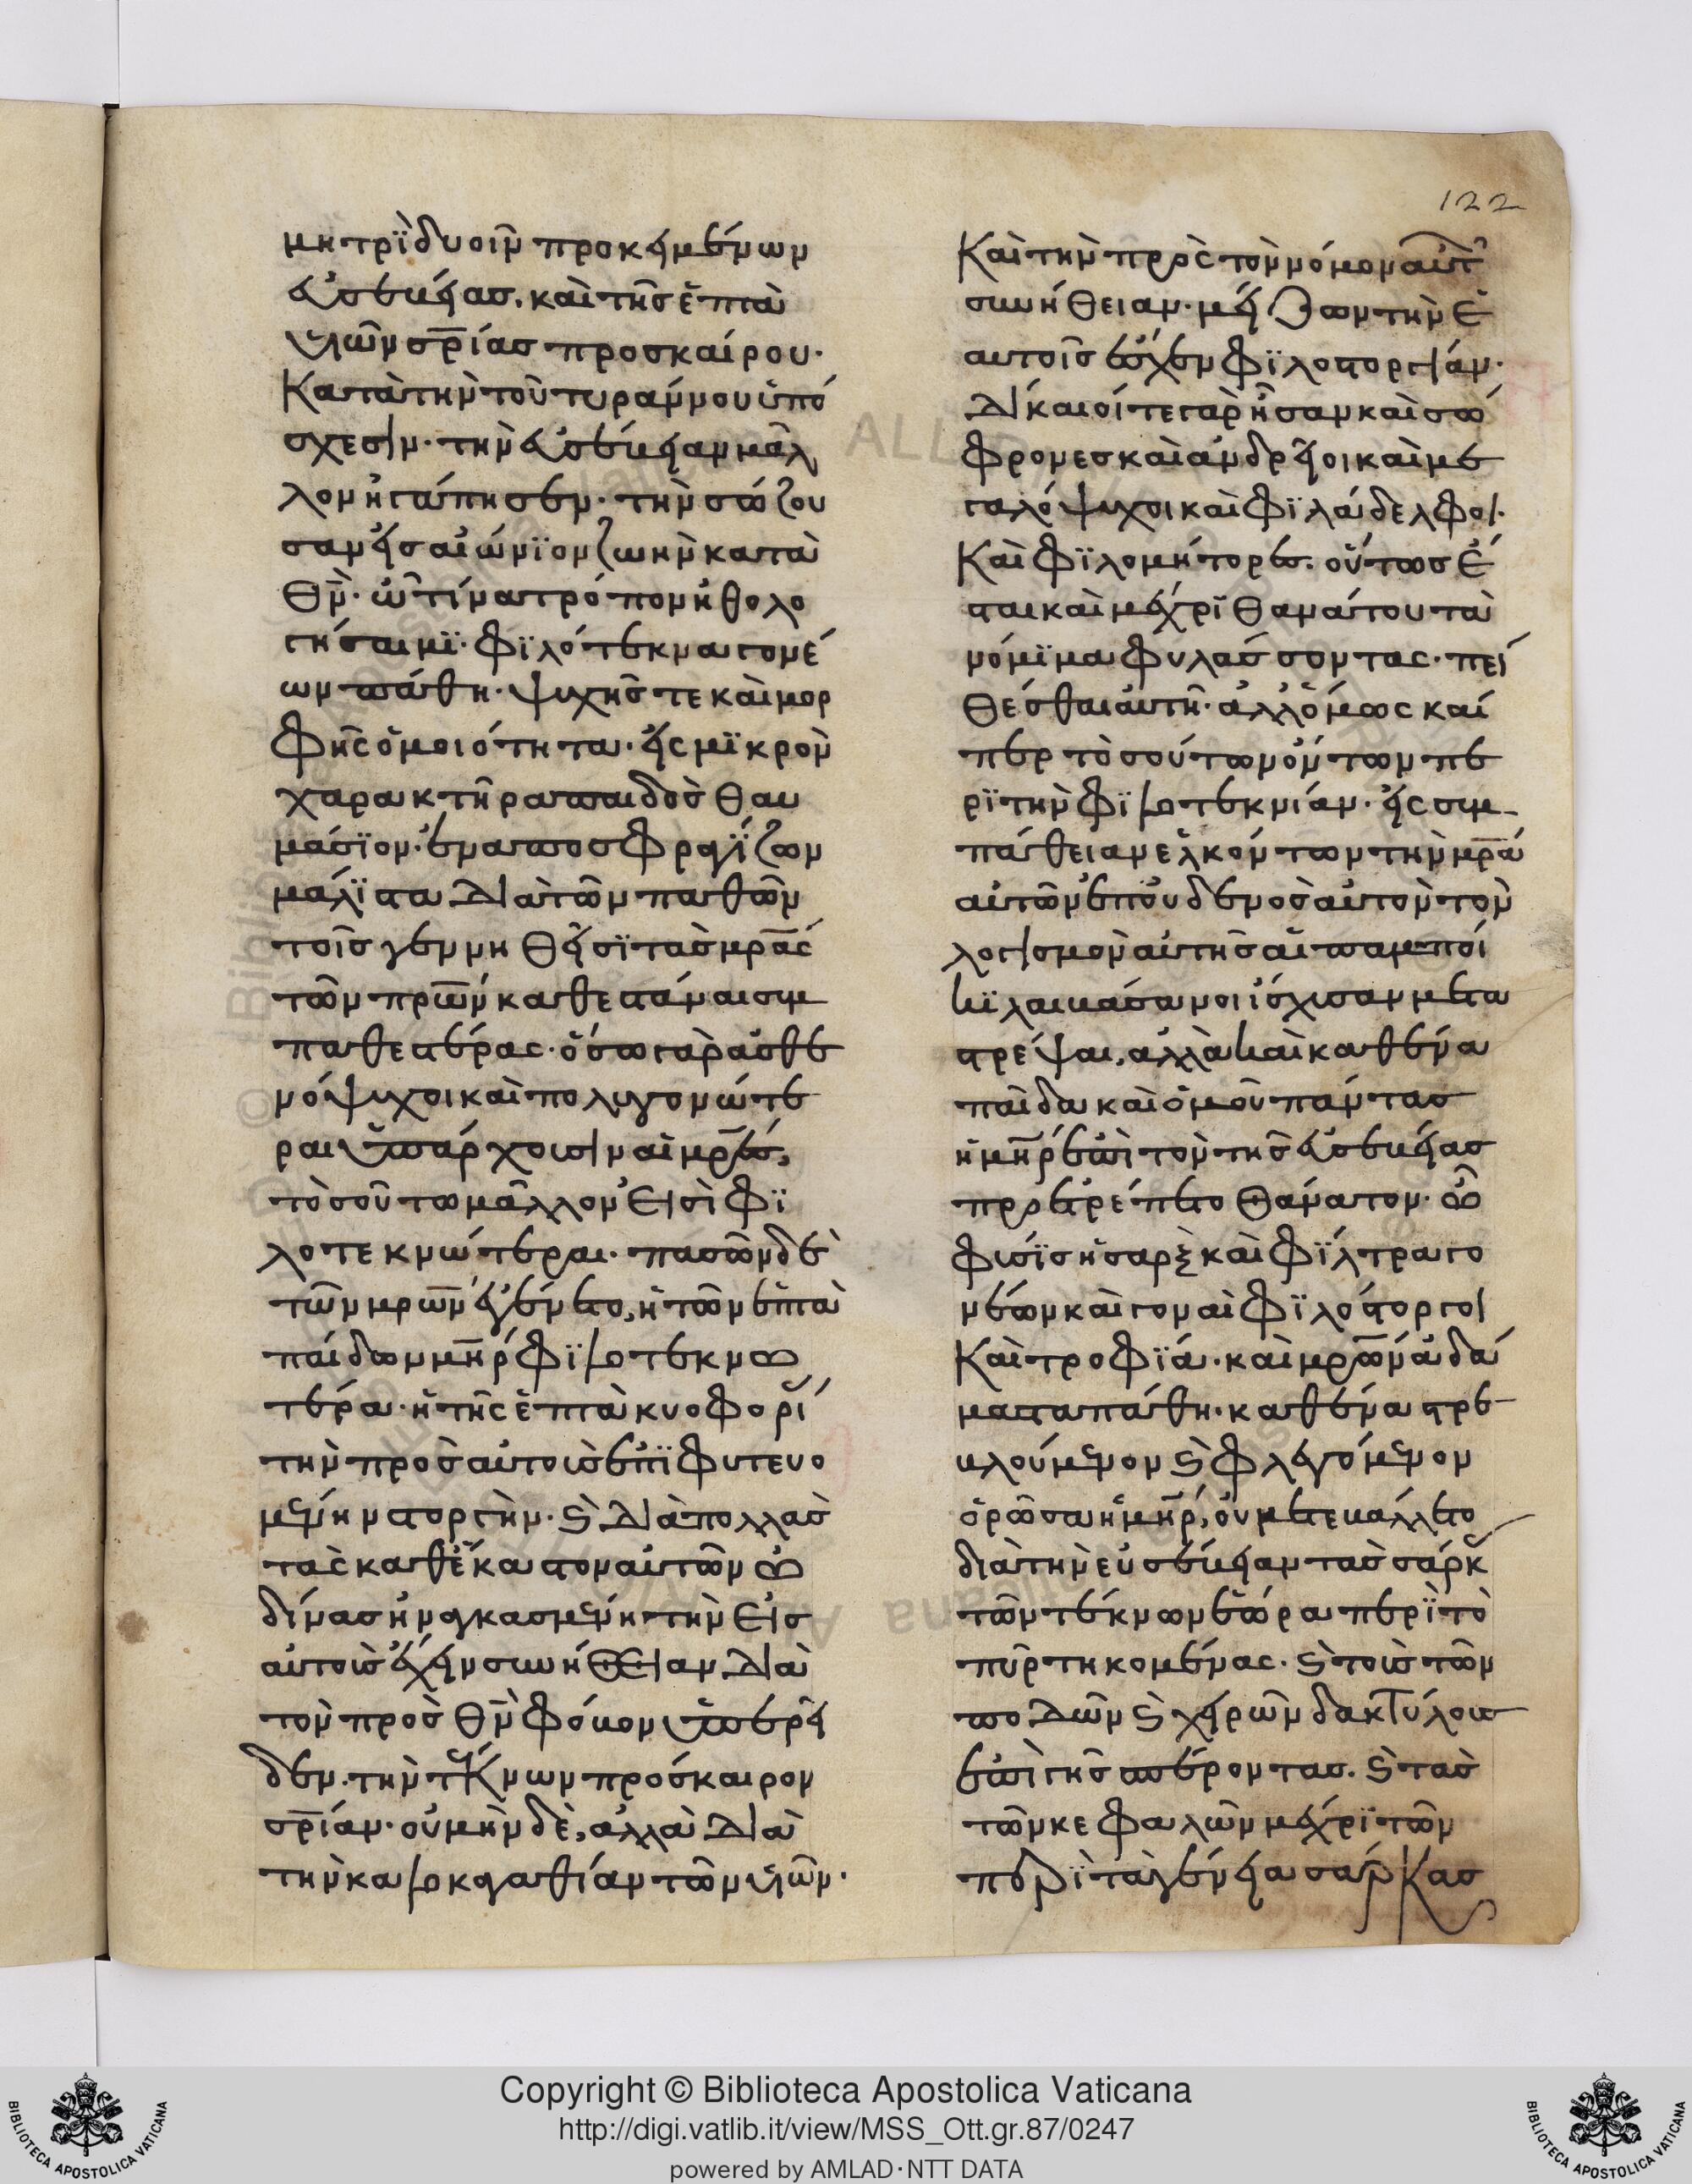 122
μητρὶ δυοῖν προκειμένων
εὐσεβείας, καὶ τῆς ἑπτὰ
υἱῶν σρίας προσκαίρου·
Κατὰ τὴν τοῦ τυράννου ὑπό
σχεσιν· τὴν εὐσέβειαν μᾶλ
λον ἠγάπησεν· τὴν σώζου
σαν εἰς αἰώνιον ζωὴν κατὰ
θν· ὦ τίνα τρόπον ἠθολο
γήσαιμι· φιλότεκνα γονέ
ων πάθη· ψυχῆς τε καὶ μορ
φῆς ὁμοιότητα· εἰς μικρὸν
χαρακτῆρα παιδὸς θαυ
μάσιον· ἐναποσφραγίζων
μάλιστα διὰ τῶν παθῶν
τοῖς γεννηθεῖσι τὰς μρας
τῶν πρων καθεστάναι συμ
παθεστέρας· ὅσω γὰρ ἀσθε
νόψυχοι καὶ πολυγονώτε
ραι ὑπάρχουσιν αἱ μρες,
τοσούτω μᾶλλον εἰσὶ φι
λοτεκνώτεραι· πασῶν δὲ
τῶν μρων ἐγένετο, ἡ τῶν ἑπτὰ
παίδων μηρ φιλοτεκνω
τέρα· ἡ τῆς ἑπτὰ κυοφορί
τὴν πρὸς αὐτοὺς ἐπιφυτευο
μένην στοργὴν· ϗ διὰ πολλὰς
τὰς καθ' ἕκαστον αὐτῶν ὠ
δίνας ἠναγκασμένη τὴν εἰς
αὐτοὺς ἔχειν συνήθειαν διὰ
τὸν πρὸς θν φόβον ὑπερεῖ
δεν· τὴν τέκνων πρόσκαιρον
σρίαν· οὐ μὴν δὲ, ἀλλὰ διὰ
τὴν καλοκαγαθίαν τῶν υἱῶν·
Καὶ τὴν πρὸς τὸν νόμον αὐτ
συνήθειαν· μείζων τὴν ἐ
αυτοῖς ἔσχεν φιλοστοργίαν·
Δίκαιοί τε γὰρ ἦσαν καὶ σώ
φρονες καὶ ἀνδρεῖοι καὶ με
γαλόψυχοι καὶ φιλάδελφοι·
Καὶ φιλομήτορες· οὕτως ἐ
σται καὶ μέχρι θανάτου τὰ
νόμιμα φυλάσσοντας· πεί
θεσθαι αὐτῆ· ἀλλ' ὅμως καί
περ τοσούτων ὄντων πε
ρὶ τὴν φιλοτεκνίαν· εἰς συμ
πάθειαν ἑλκόντων τὴν μρα
αὐτῶν ἐπ' οὐδενὸς αὐτὸν τὸν
λογισμὸν αὐτῆς αἱ παμποί
κιλαι βάσανοι ἴσχυσαν μετα
στρέψαι, ἀλλὰ καὶ καθ' ἕνα
παῖδα καὶ ὁμοῦ πάντας
ἡ μηρ ἐπὶ τὸν τῆς εὐσεβείας
προετρέπετο θάνατον· ὦ
φύσις ἡ σαρξ καὶ φίλτρα γο
νέων καὶ γοναὶ φιλόστοργοι
Καὶ τροφιά· καὶ μρων ἀδά
μαστα πάθη· καθ' ἕνα στρε
βλούμενον ϗ φλεγόμενον
ὁρῶσα ἡ μηρ, οὐ μετεβάλλετο
διὰ τὴν εὐσέβειαν τὰς σάρκ
τῶν τέκνων ἑώρα περὶ τὸ
πῦρ τηκομένας· ϗ τοὺς τῶν
ποδῶν ϗ χειρῶν δακτύλους
ἐπὶ γῆς σπέροντας· ϗ τὰς
τῶν κεφαλῶν μέχρι τῶν
περὶ τὰ γένεια σάρκας
Copyright © Biblioteca Apostolica Vaticana
http://digi.vatlib.it/view/MSS_Ott.gr.87/0247
powered by AMLAD·NTT DATA
BIBLIOTECA APOSTOLICA VATICANA
BIBLIOTECA APOSTOLICA VATICANA